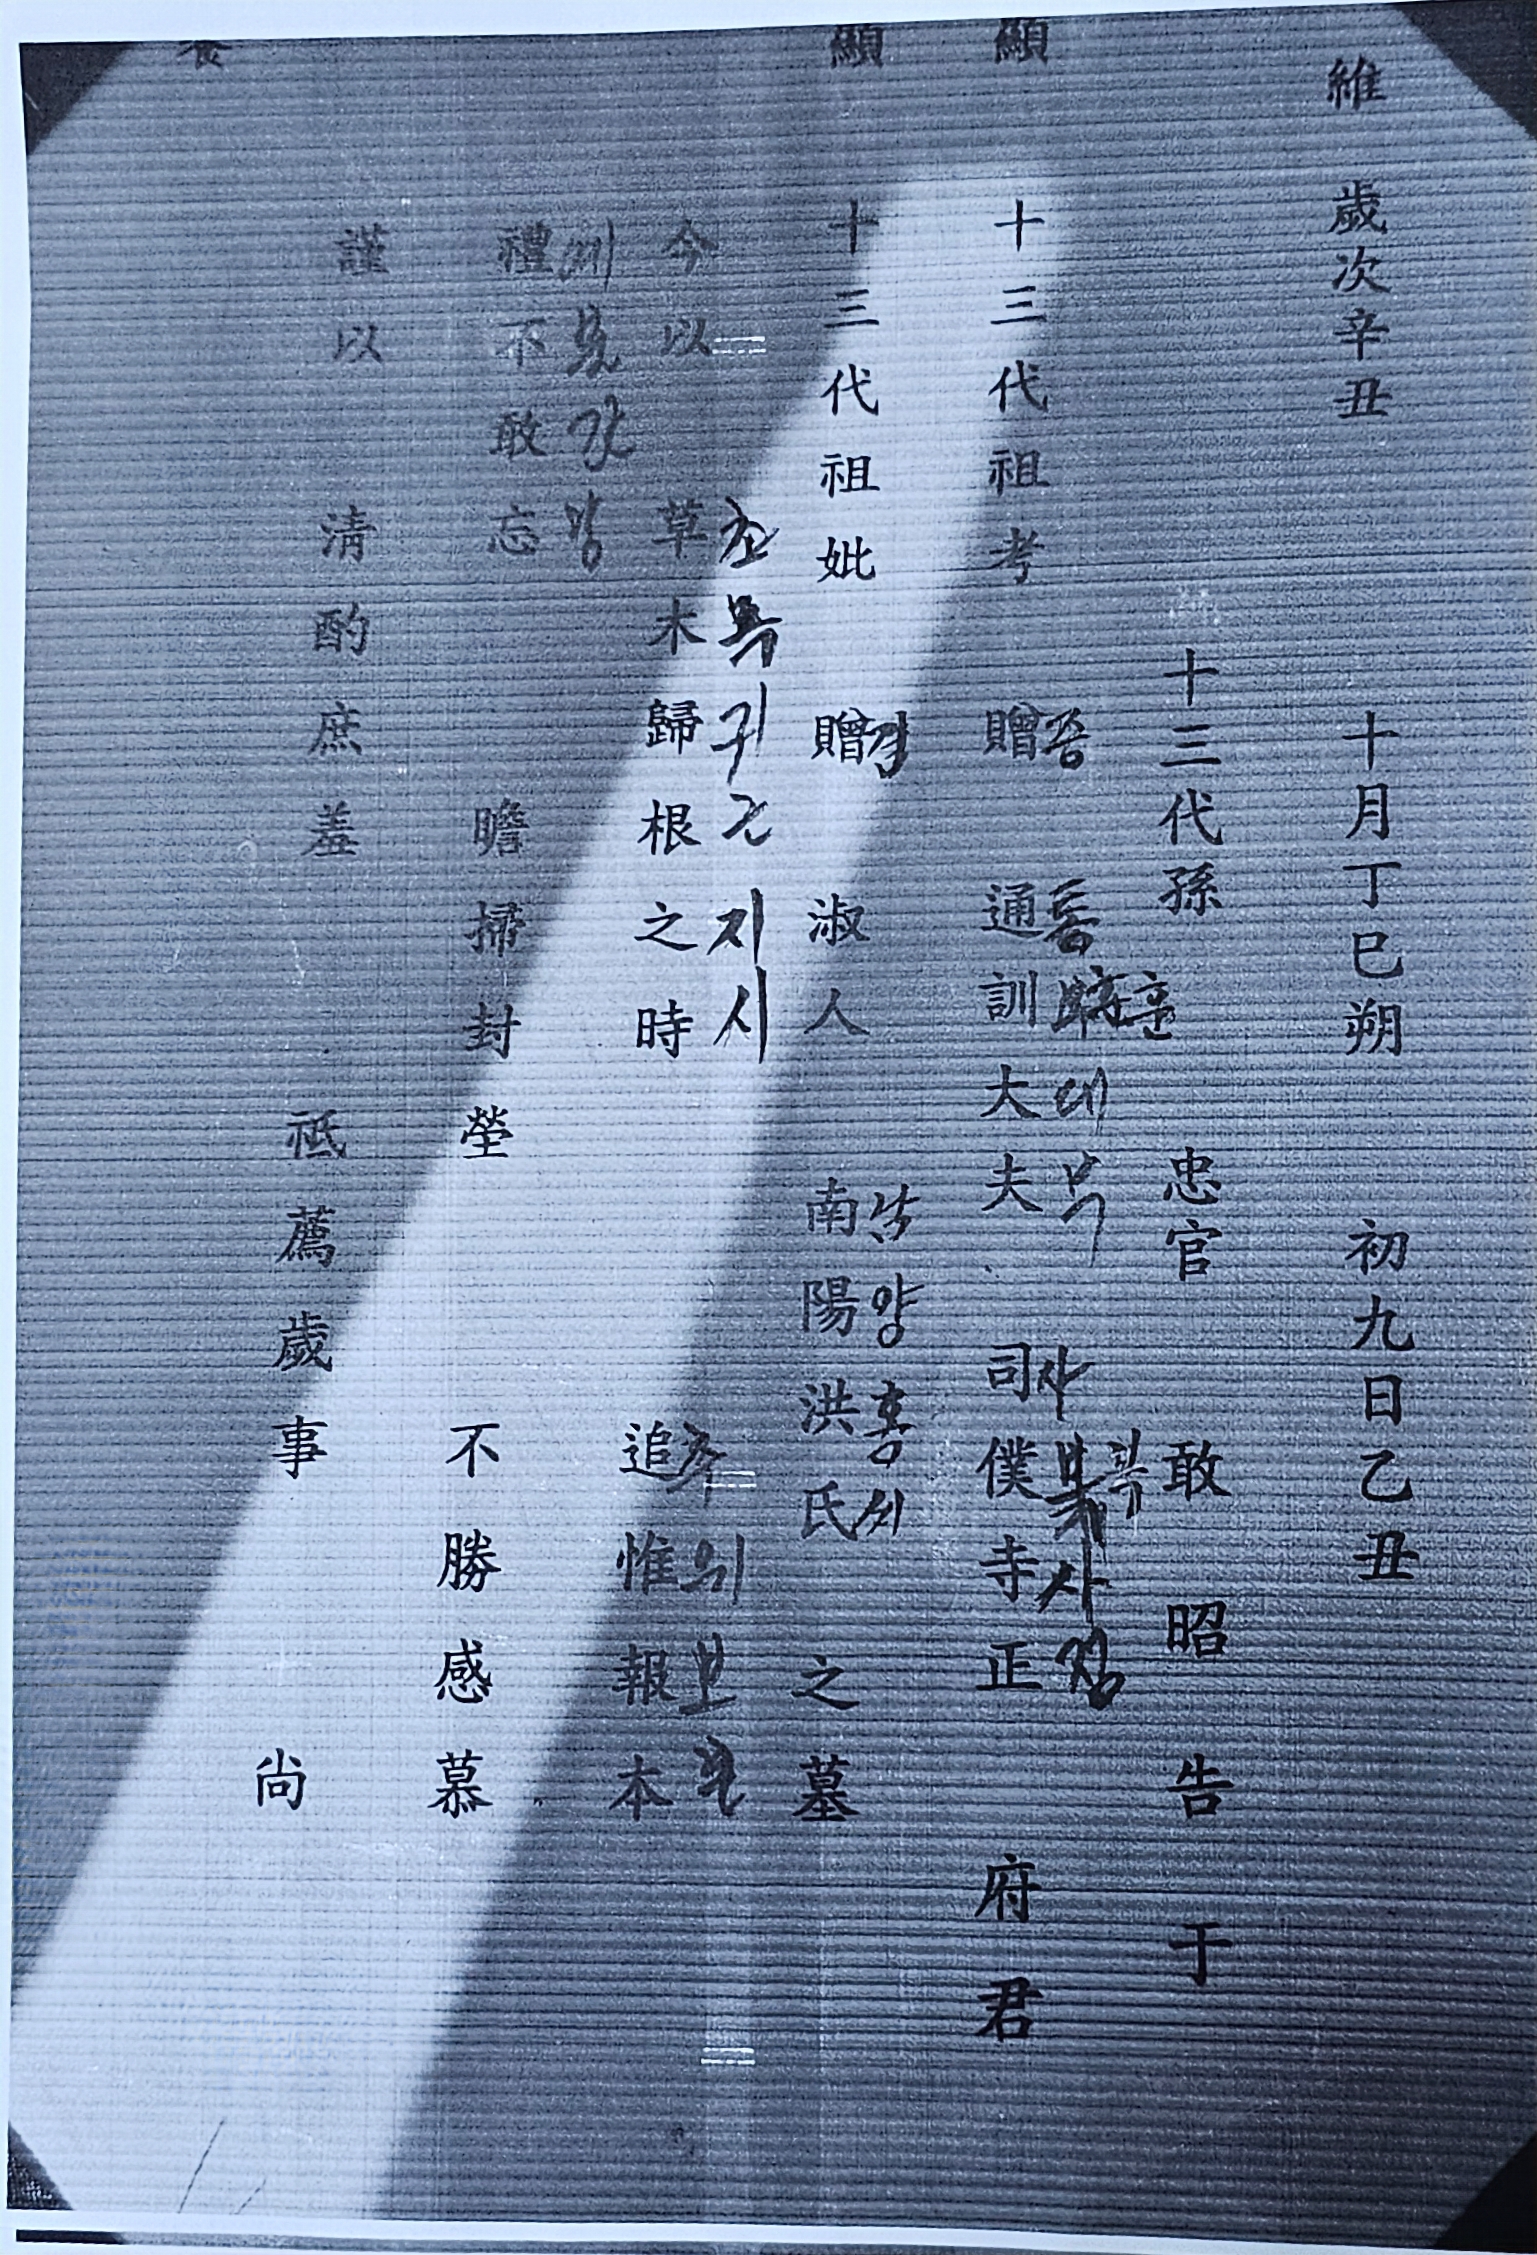 維 歲次辛丑 十月丁巳朔 初九日乙丑
十三代孫 忠官 敢 昭 告 于
顯 十三代祖考 贈 通訓大夫 司僕寺正 府君
증 통 훈 대부 사 복 사 정
顯 十三代祖妣 贈 淑人 南陽洪氏 之墓
남양홍씨
今以 草木歸根之時 追惟報本
초목귀근지시 추의보본
禮不敢忘 瞻掃封塋 不勝感慕
謹以 淸酌庶羞 祗薦歲事 尙
饗